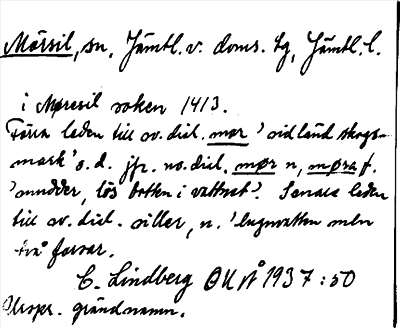 Mörsil, sn, Jämtl. v. doms. tg, Jämtl. l.
i Møresil soken 1413.
Förra leden till sv. dial. mor 'sidländ skogs-
mark' o. d. jfr. no. dial. mør n, møra f.
'mudder, lös botten i vattnet'. Senare leden
till sv. dial. siller, n. 'lugnvatten mellan
två forsar.
C. Lindberg OUÅ 1937:50
Urspr. gårdnamn.